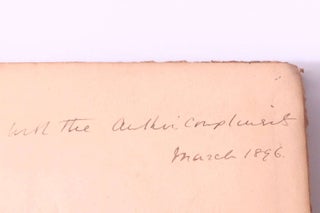 with the Author's Compliments
March 1896.